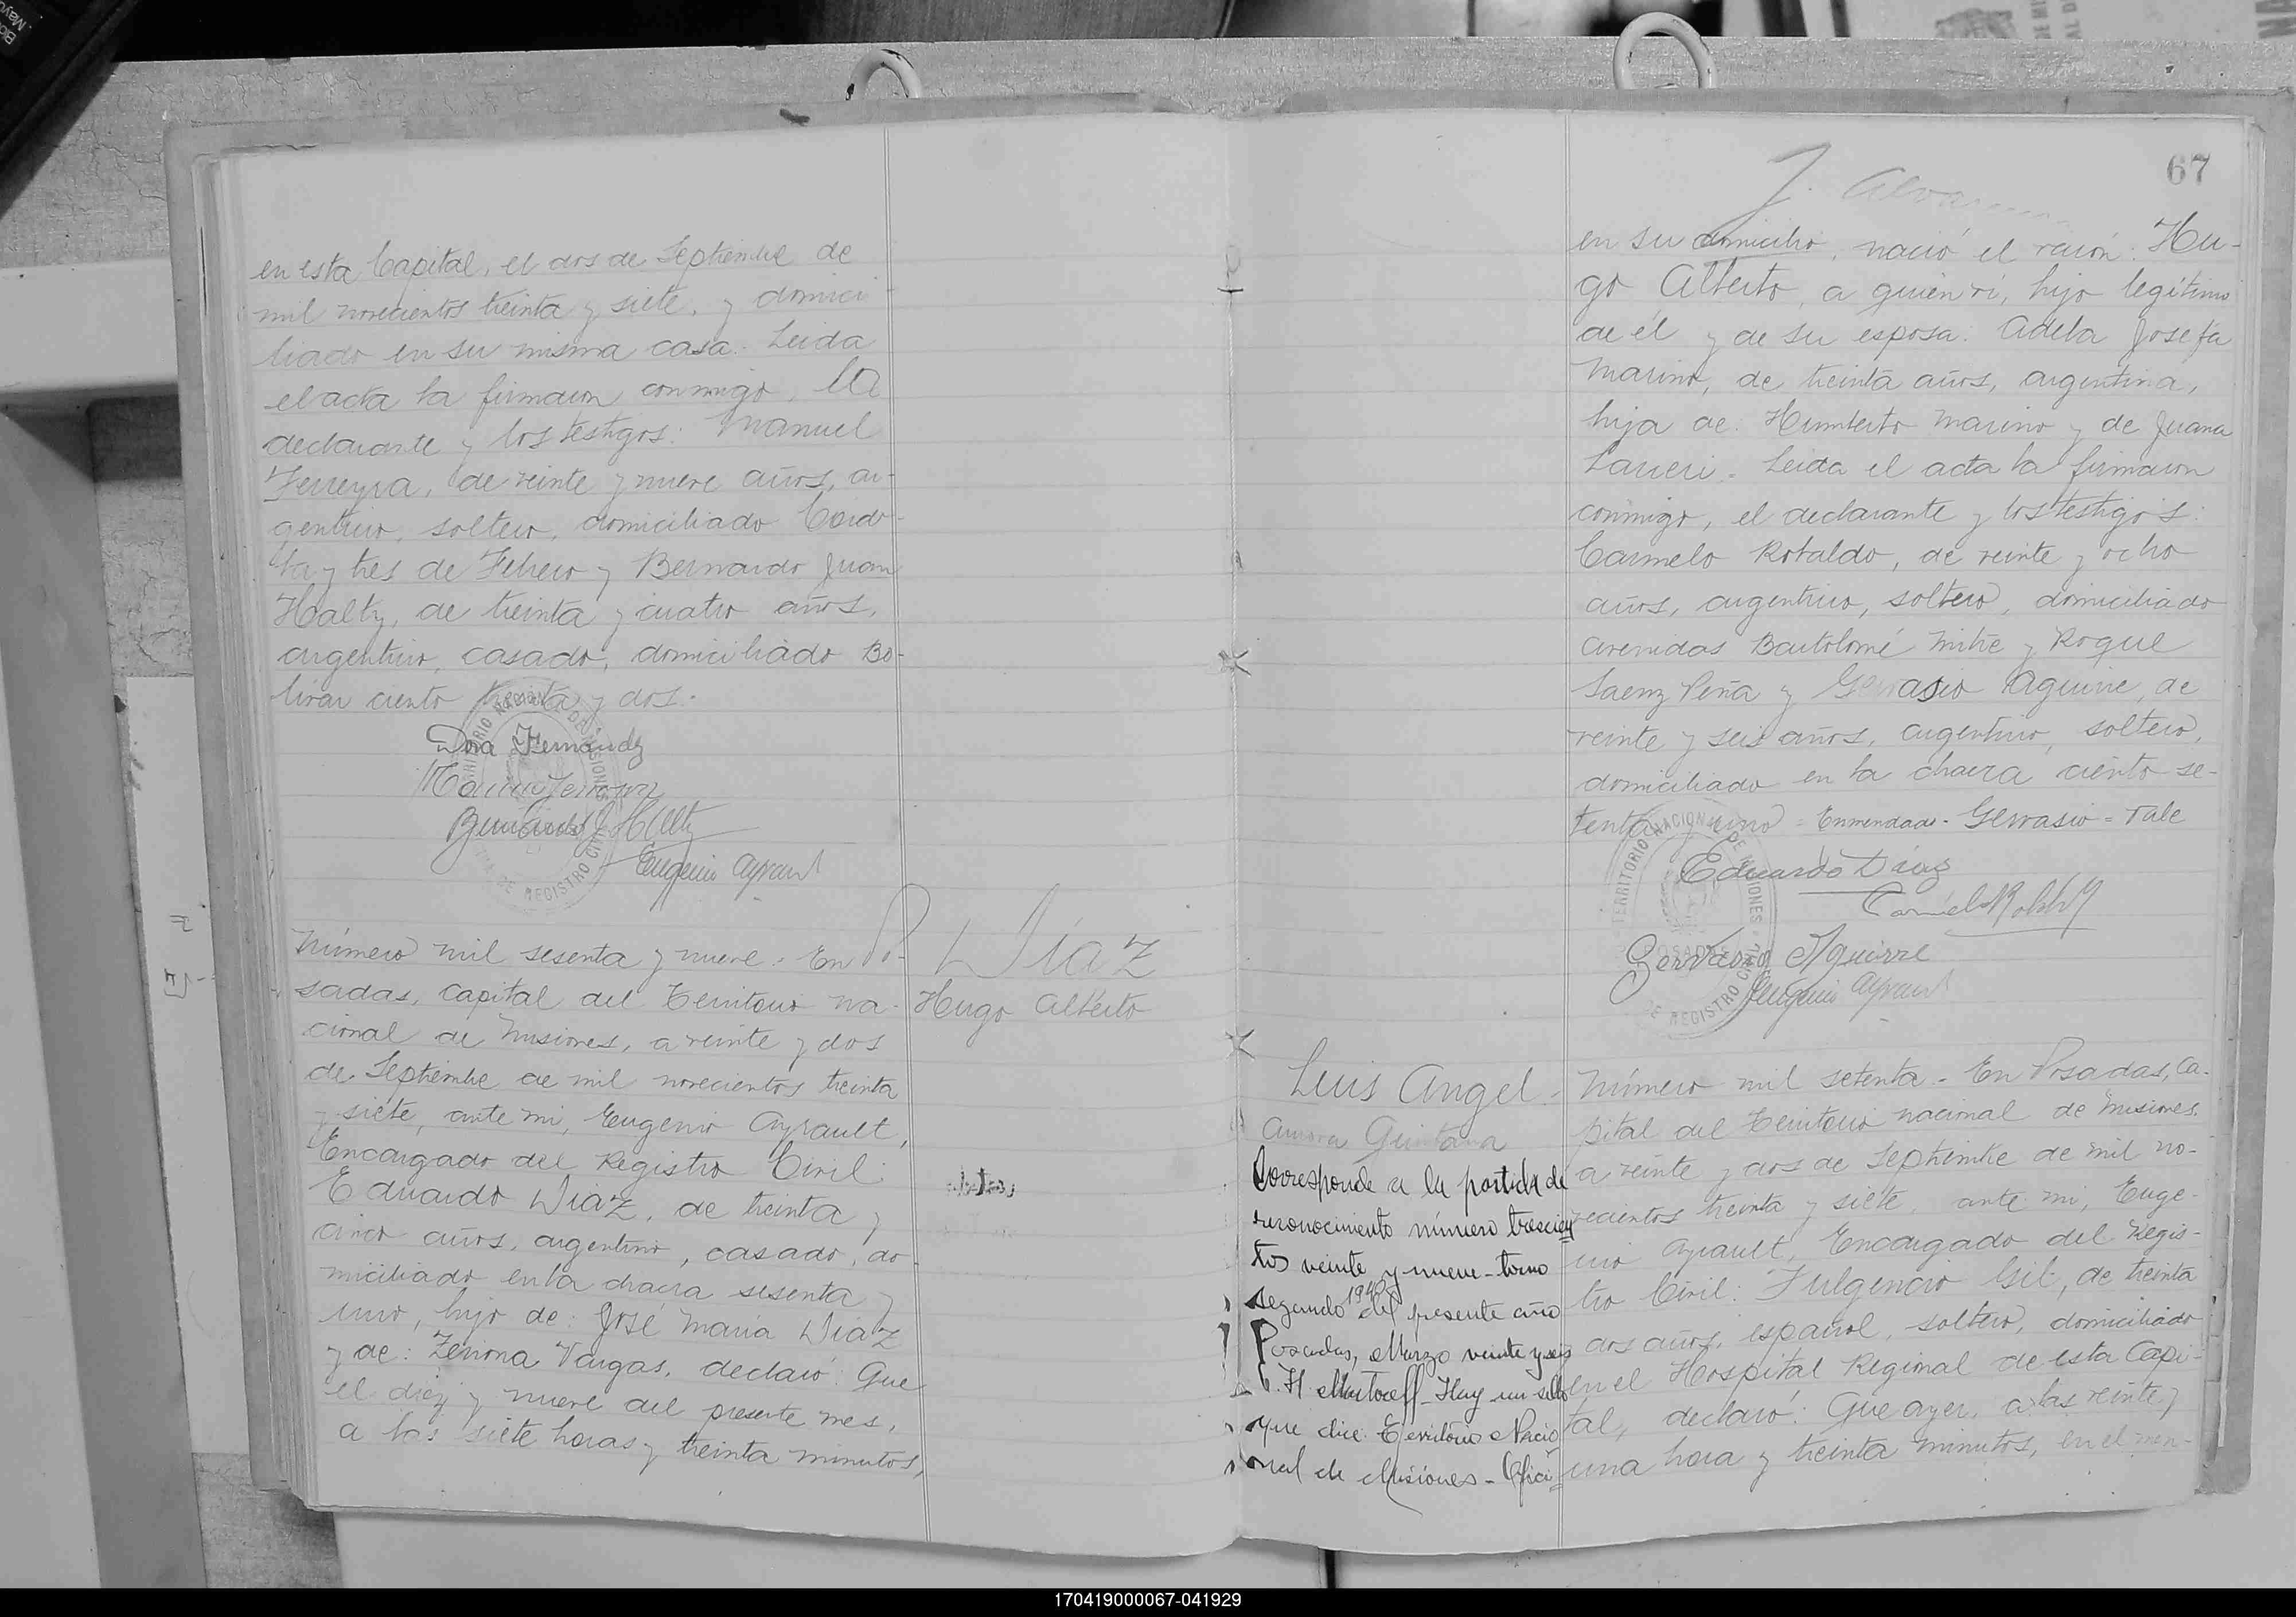 en esta Capital, el dos de Septiembre de
mil novecientos treinta y siete, y domici-
liado en su misma casa. Leida
el acta la firmaron conmigo, la
declarante y los testigos: Manuel
Ferreyra, de veinte y nueve años, ar-
gentino, soltero, domiciliado Cordo-
ba y tres de Febrero y Bernardo Juan
Halty, de treinta y cuatro años,
argentino, casado, domiciliado Bo-
livar ciento treinta y dos.
Dora Fernandz
Bernardo J Halty
Eugenio Ayrault
Número mil sesenta y nueve. En Po-
sadas, Capital del Territorio na-
cional de Misiones, a veinte y dos
de Septiembre de mil novecientos treinta
y siete, ante mi, Eugenio Ayrault,
Encargado del Registro Civil:
Eduardo Diaz, de treinta y
cinco años, argentino, casado, do-
miciliado en la chacra sesenta y
uno, hijo de: José Maria Diaz
y de: Zenona Vargas, declaró: Que
el diez y nueve del presente mes,
a las siete horas y treinta minutos,
Diaz
Hugo Alberto
67
J. Alva
en su domicilio, nació el varón: Hu-
go Alberto, a quien vi, hijo legitimo
de él y de su esposa: Adela Josefa
Marino, de treinta años, argentina,
hija de: Humberto Marino y de Juana
Laneri. Leida el acta la firmaron
conmigo, el declarante y los testigos:
Carmelo Robaldo, de veinte y ocho
años, argentino, soltero, domiciliado
avenidas Bartolomé Mitre y Roque
Saenz Peña y Gervasio Aguirre, de
veinte y seis años, argentino, soltero,
domiciliado en la chacra ciento se-
tenta y uno = Enmendado - Gervasio = Vale
TERRITORIO NACIONAL DE MISIONES
POSADAS
DE REGISTRO CIVIL
Eduardo Diaz
Gervasio Aguirre
Eugenio Ayrault
Luis Angel -
Aurora Quintana
Corresponde a la partida de
reconocimiento número trescien
tos veinte y nueve - tomo
segundo 1940 del presente año
Posadas, Marzo veinte y seis
Hay un sello
que dice: Territorio Nacio
nal de Misiones - Ofici
Número mil setenta - En Posadas, Ca-
pital del Territorio nacional de Misiones
a veinte y dos de Septiembre de mil no-
vecientos treinta y siete, ante mi, Euge-
nio Ayrault, Encargado del Regis-
tro Civil: Fulgencio Gil, de treinta
dos años, español, soltero, domiciliado
en el Hospital Regional de esta Capi-
tal, declaró: Que ayer, a las veinte y
una hora y treinta minutos, en el men-
170419000067-041929